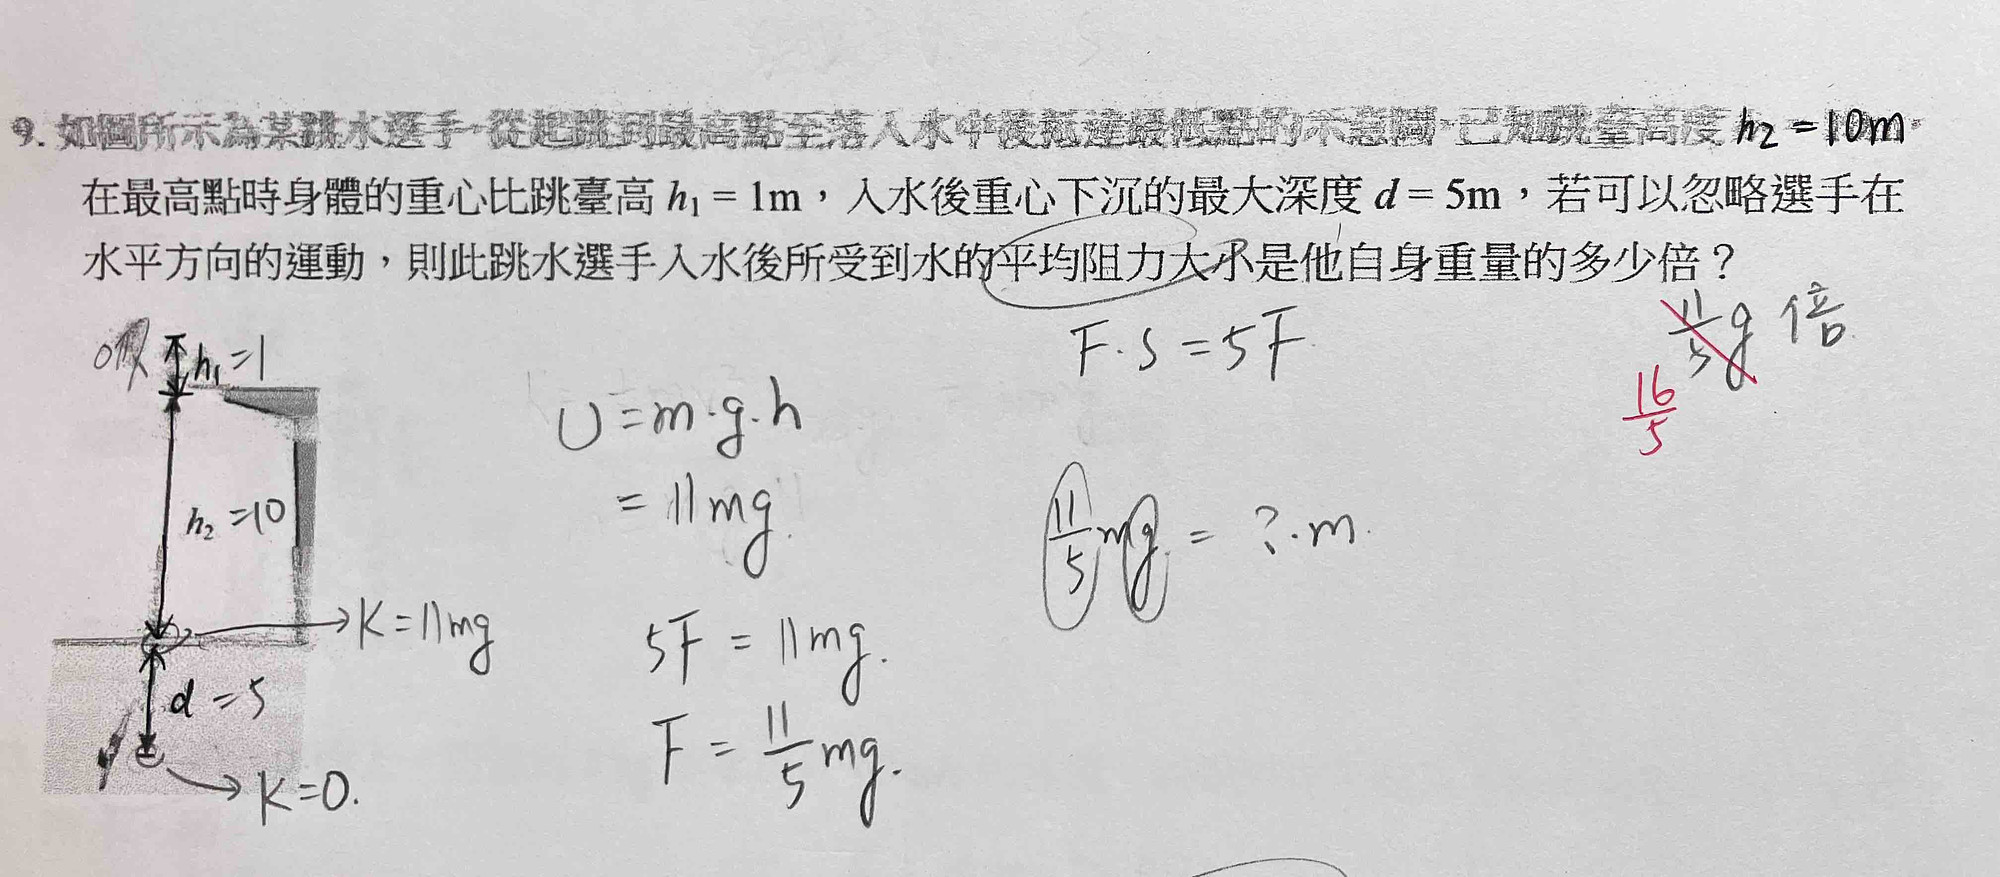 9. 如圖所示為某跳水選手,從起跳到最高點至落入水中後抵達最低點的示意圖,已知跳臺高度 h₂ = 10m,
在最高點時身體的重心比跳臺高 h₁ = 1m,入水後重心下沉的最大深度 d = 5m,若可以忽略選手在
水平方向的運動,則此跳水選手入水後所受到水的平均阻力大小是他自身重量的多少倍?
11/5 g 倍.
16/5
F·S = 5F
h₁ = 1
h₂ = 10
→ K = 11mg
d = 5
→ K = 0.
U = m·g·h
= 11mg.
5F = 11mg.
F = 11/5 mg.
11/5 mg. = ?·m.